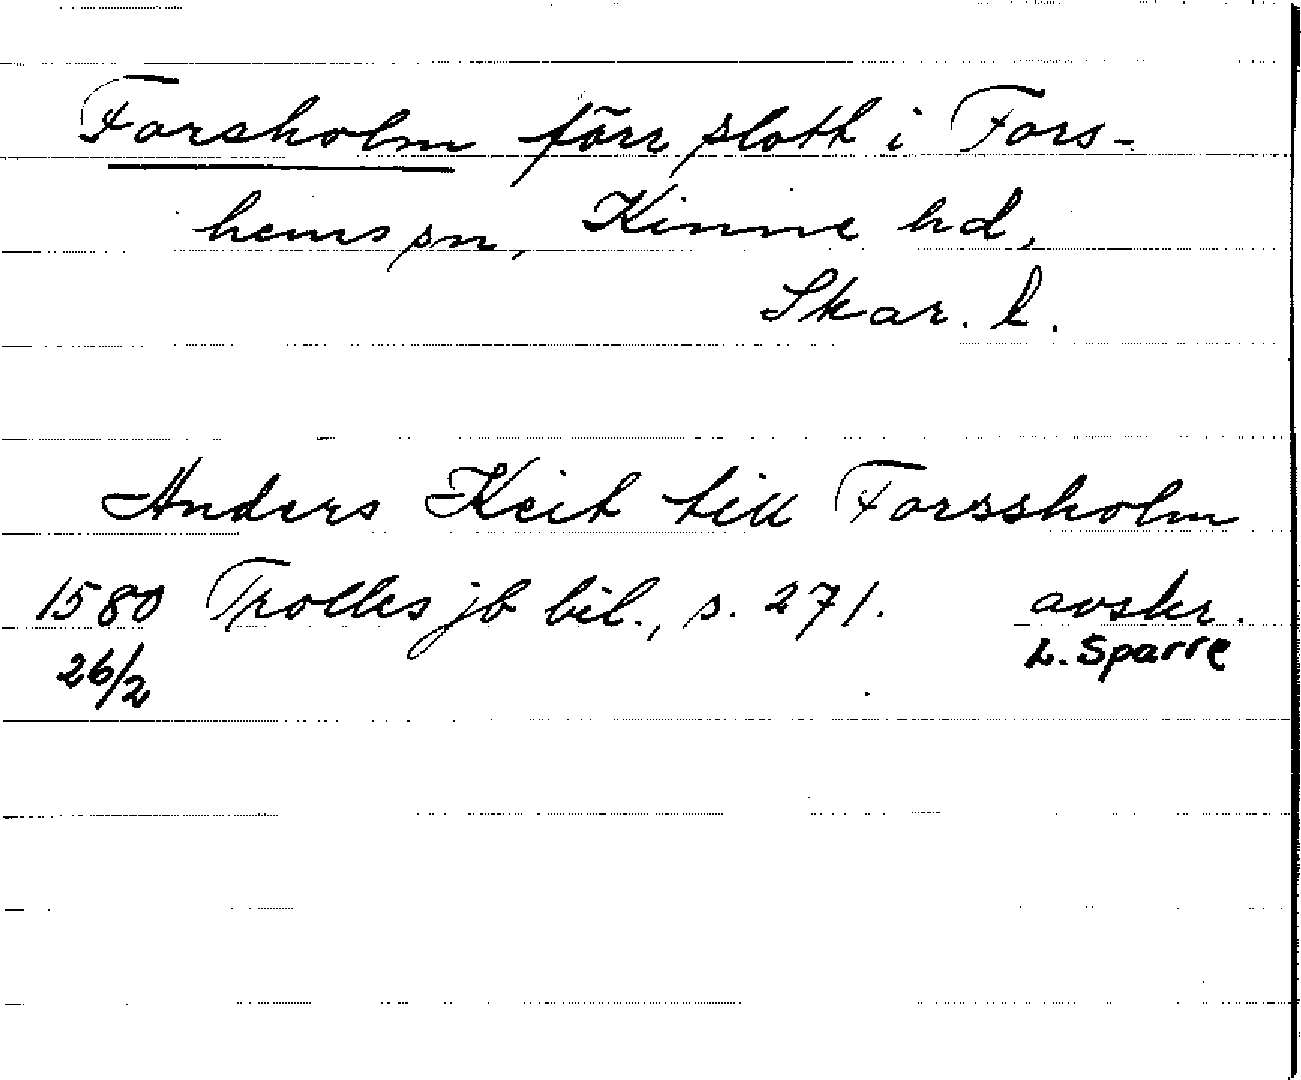 Forsholm förr slott i Fors-
hems sn, Kinne hd,
Skar. l.
Anders Keit till Forssholm
1580 Trolles jb bil., s. 271. avskr.
26/2 L. Sparre